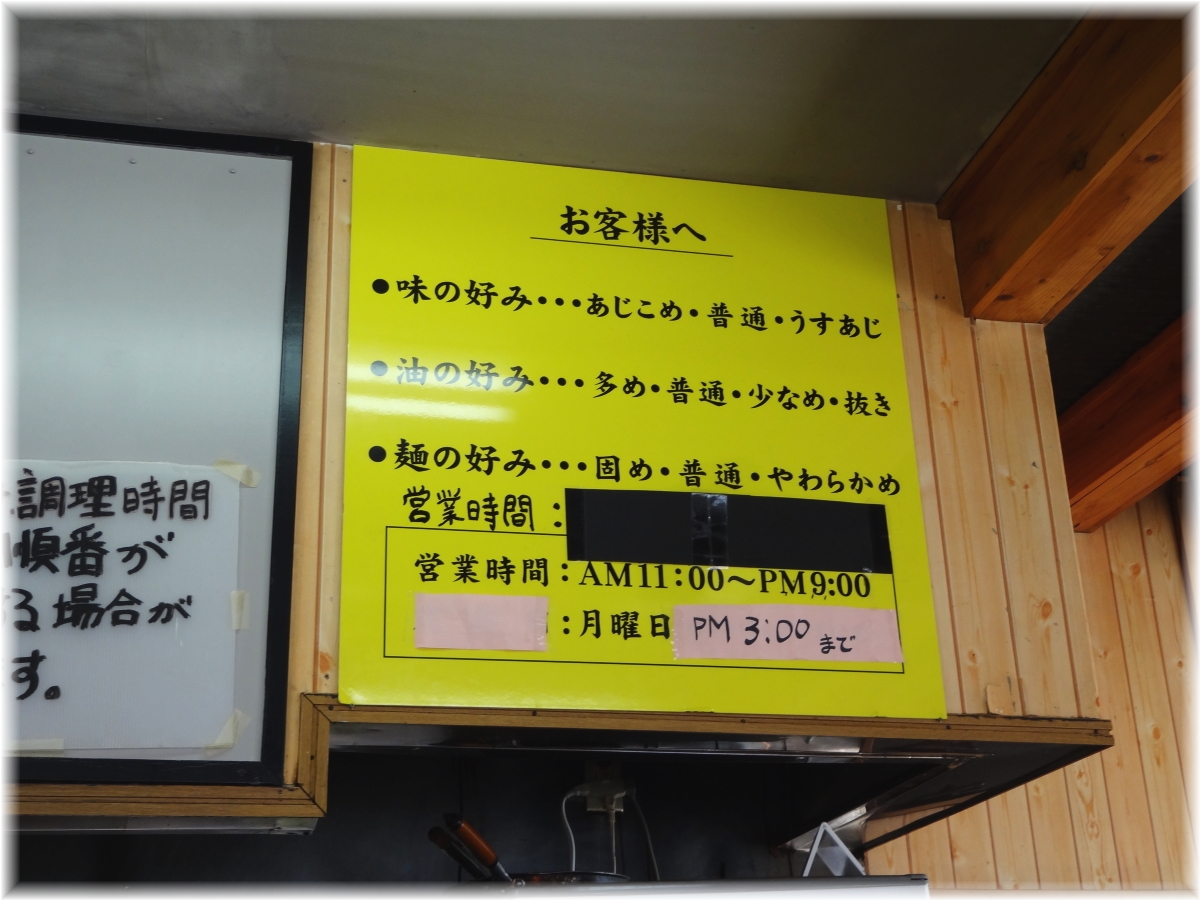 お客様へ
●味の好み・・・あじこめ・普通・うすあじ
●油の好み・・・多め・普通・少なめ・抜き
●麺の好み・・・固め・普通・やわらかめ
営業時間：
営業時間：AM11：00〜PM9:00
：月曜日 PM 3:00 まで
調理時間
順番が
る場合が
す。